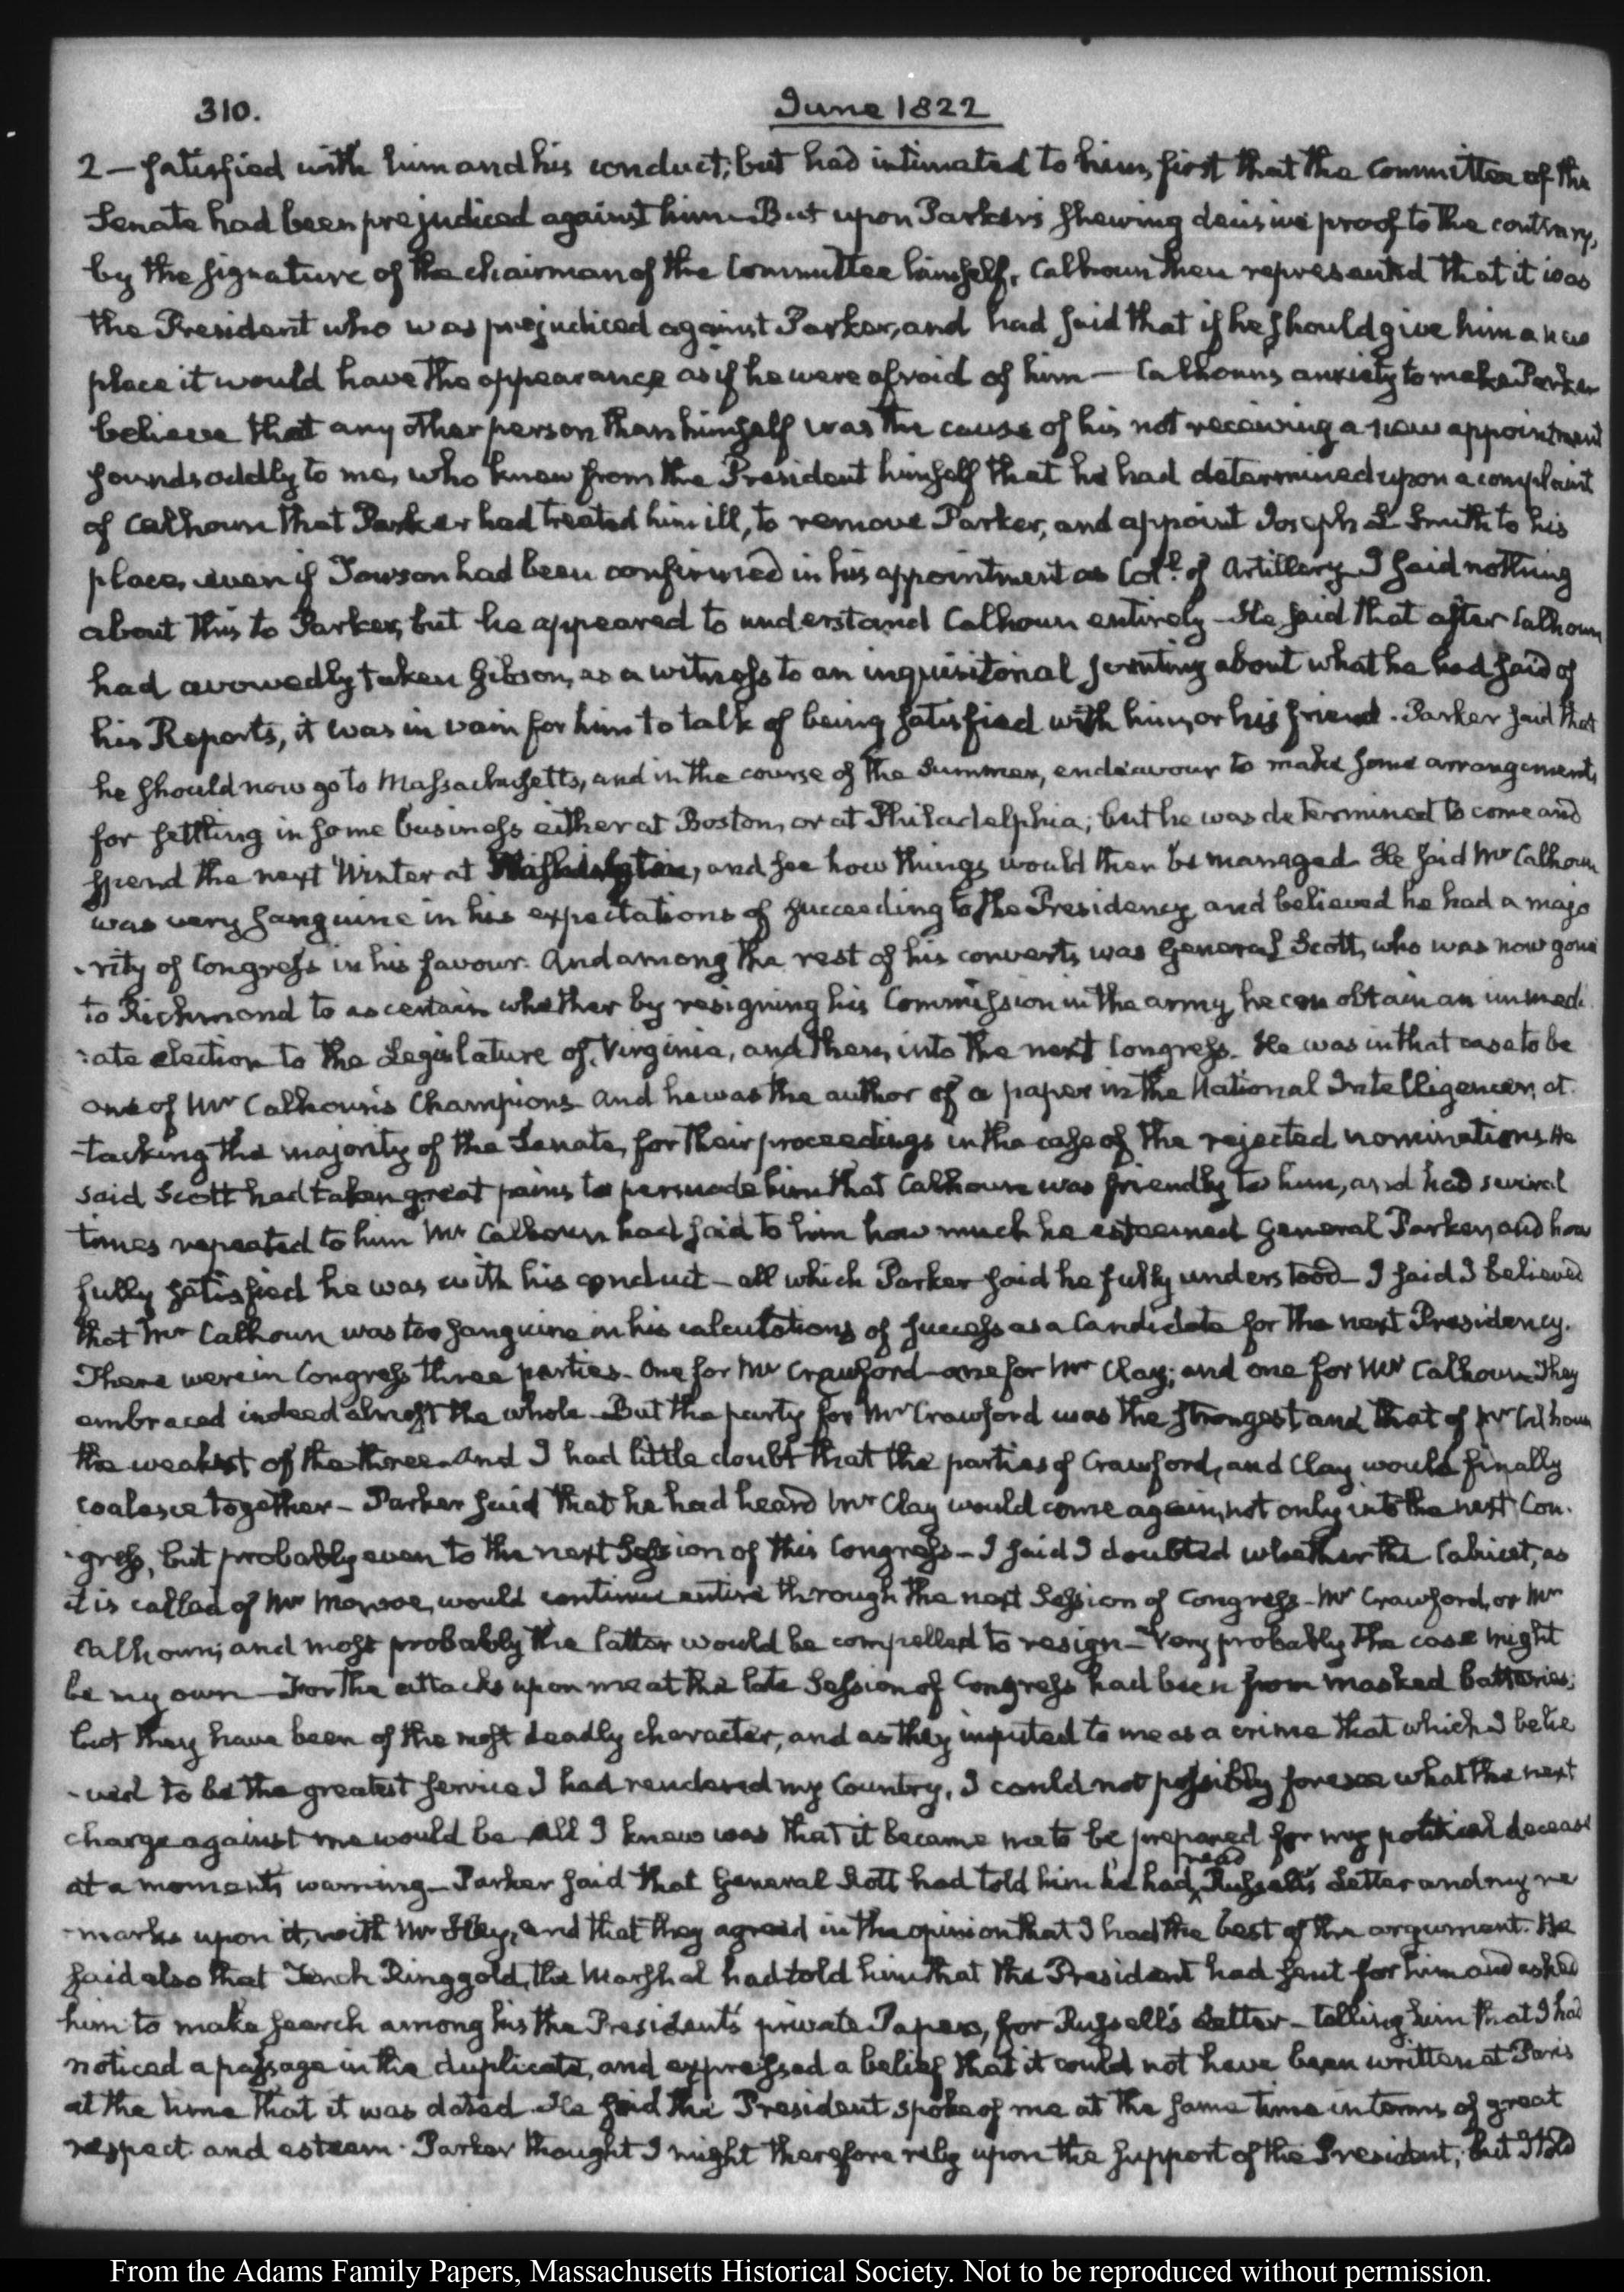 310.
June 1822
2 — satisfied with him and his conduct; but had intimated to him, first that the Committee of the
Senate had been prejudiced against him — But upon Parker's shewing decisive proof to the contrary,
by the signature of the chairman of the Committee himself, Calhoun then represented that it was
the President who was prejudiced against Parker, and had said that if he should give him a new
place it would have the appearance as if he were afraid of him — Calhoun's anxiety to make Parker
believe that any other person than himself was the cause of his not receiving a new appointment
sounds oddly to me, who knew from the President himself that he had determined upon a complaint
of Calhoun that Parker had treated him ill, to remove Parker, and appoint Joseph L Smith to his
place, even if Towson had been confirmed in his appointment as Col.l of Artillery — I said nothing
about this to Parker, but he appeared to understand Calhoun entirely — He said that after Calhoun
had avowedly taken Gibson, as a witness to an inquisitorial about what he had said of
his Reports, it was in vain for him to talk of being satisfied with him, or his friend. Parker said that
he should now go to Massachusetts, and in the course of the Summer, endeavour to make some arrangements
for settling in some business either at Boston, or at Philadelphia; but he was determined to come and
spend the next Winter at Washington, and see how things would then be managed. He said Mr Calhoun
was very sanguine in his expectations of succeeding to the Presidency and believed he had a majo
-rity of Congress in his favour. And among the rest of his converts, was General Scott, who was now gone
to Richmond to ascertain whether by resigning his Commission in the army, he can obtain an immedi
-ate election to the Legislature of Virginia, and then, into the next Congress. He was in that case to be
one of Mr Calhoun's Champions and he was the author of a paper in the National Intelligencer, at
-tacking the majority of the Senate, for their proceedings in the case of the rejected nominations. He
said Scott had taken great pains to persuade him that Calhoun was friendly to him, and had several
times repeated to him Mr Calhoun had said to him how much he esteemed General Parker, and how
fully satisfied he was with his conduct — all which Parker said he fully understood — I said I believed
that Mr Calhoun was too sanguine in his calculations of success as a Candidate for the next Presidency.
There were in Congress three parties — One for Mr Crawford — one for Mr Clay; and one for Mr Calhoun — They
embraced indeed almost the whole — But the party for Mr Crawford was the strongest and that of Mr Calhoun
the weakest of the three — And I had little doubt that the parties of Crawford, and Clay would finally
coalesce together — Parker said that he had heard Mr Clay would come again, not only into the next Con-
-gress, but probably even to the next Session of this Congress — I said I doubted whether the Cabinet, as
it is called of Mr Monroe, would continue entire through the next Session of Congress — Mr Crawford, or Mr
Calhoun; and most probably the latter would be compelled to resign — Very probably the case might
be my own — For the attacks upon me at the late Session of Congress had been from masked batteries;
but they have been of the most deadly character, and as they imputed to me as a crime that which I belie
-ved to be the greatest service I had rendered my Country, I could not possibly foresee what the next
charge against me would be — All I knew was that it became me to be prepared for my political decease
at a moment's warning — Parker said that General Scott had told him he had read Russell's Letter and my re
-marks upon it, with Mr Hay, and that they agreed in the opinion that I had the best of the argument. He
said also that Tench Ringgold, the Marshal had told him that the President had sent for him and asked
him to make search among his the President's private Papers, for Russell's Letter — telling him that I had
noticed a passage in the duplicate, and expressed a belief that it could not have been written at Paris
at the time that it was dated. He said the President spoke of me at the same time in terms of great
respect and esteem. Parker thought I might therefore rely upon the support of the President; but I told
From the Adams Family Papers, Massachusetts Historical Society. Not to be reproduced without permission.